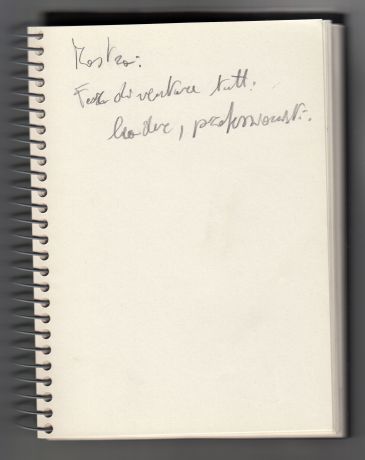 Mostra:
Far diventare tutti
leader, professionisti.